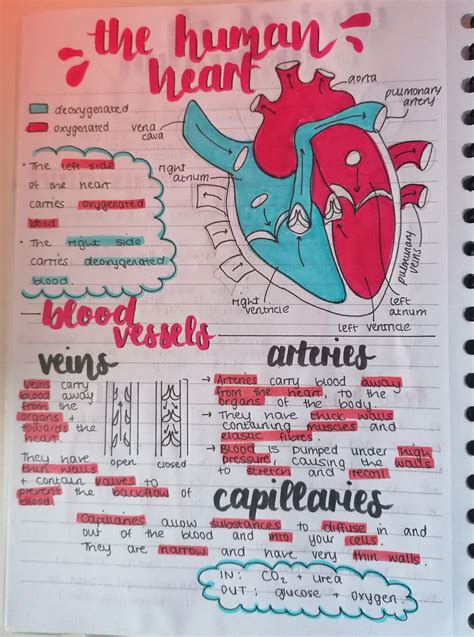 the human
heart
deoxygenated
oxygenated
vena
cava
aorta
pulmonary
artery
right
atrium
• The left side
of the heart
carries oxygenated
blood.
• The right side
carries deoxygenated
blood.
right
ventricle
left ventricle
left
atrium
pulmonary
veins
blood
vessels
veins
Veins carry
blood away
from the
organs +
towards the
heart.
They have
thin walls
+ contain valves to
prevent the backflow of
blood.
open
closed
arteries
→ Arteries carry blood away
from the heart, to the
organs of the body.
→ They have thick walls
containing muscles and
elastic fibres.
→ Blood is pumped under high
pressure, causing the walls
to stretch and recoil.
capillaries
Capillaries allow substances to diffuse in and
out of the blood and into your cells.
They are narrow and have very thin walls.
IN: CO2 + urea
OUT: glucose + oxygen.